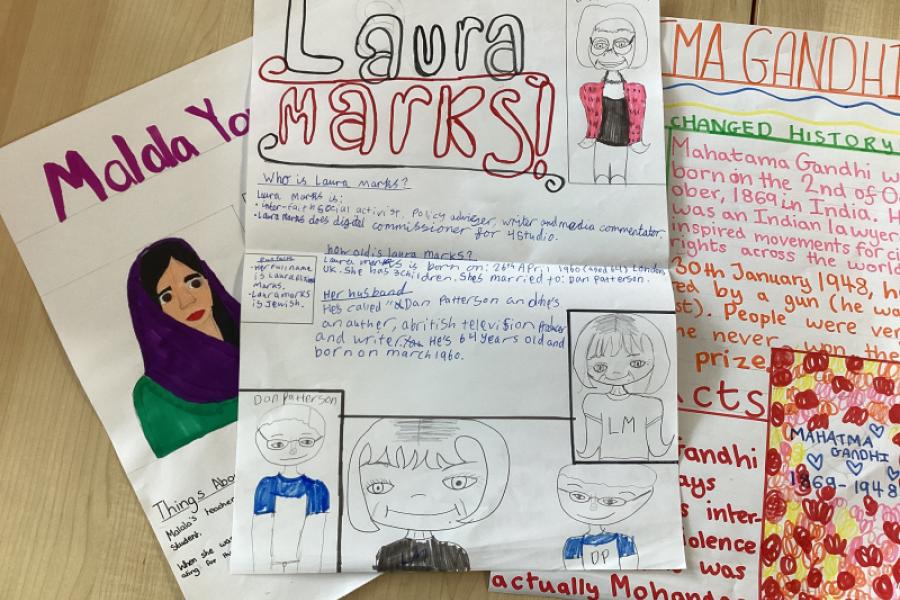 Laura
marks!
Who is Laura marks?
Laura Marks is:
• inter-faith social activist, Policy adviser, writer and media commentator.
• Laura Marks does digital commissioner for 4Studio.
how old is laura marks?
Laura is born on: 26th April 1960 (aged 64) London
UK. She has 3 children. She's married to: Dan Patterson.
Her full name
is Laura
Marks.
• Laura marks
is Jewish.
Her husband
He's called Dan Patterson and he's
an auther, a british television Producer
and writer. He's 64 years old and
born on march 1960.
Dan Patterson
LM
DP
Malala Yo
Things Abo
Malala's teache
student.
When she was
ating for th
MA GANDHI
CHANGED HISTORY
Mahatama Gandhi w
born in the 2nd of Oc
ober, 1869 in India. H
was an Indian lawyer
inspired movements for ci
rights across the world
30th January 1948, h
ed by a gun (he wa
st). People were ver
he never won the
prize
acts
Gandhi
ays
s inter-
olence
was
actually Mohandas
MAHATMA
GANDHI
1869-1948